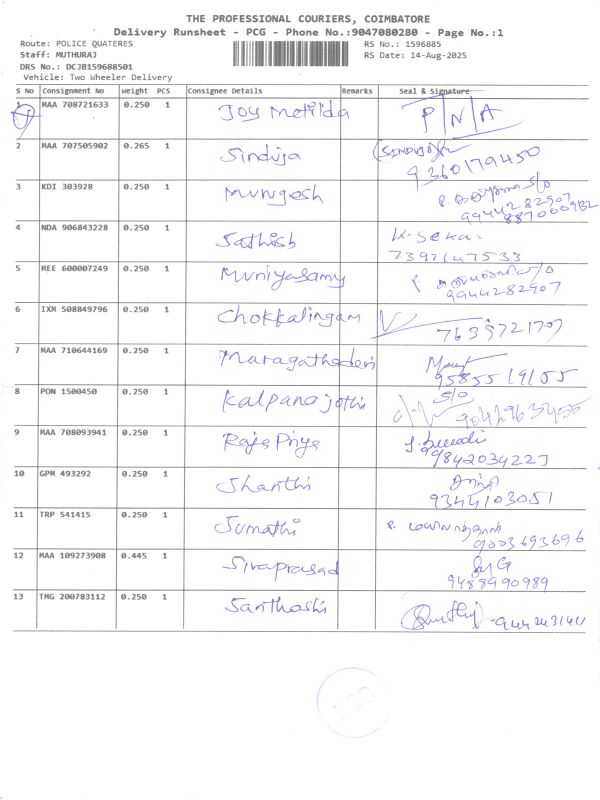 THE PROFESSIONAL COURIERS, COIMBATORE
Delivery Runsheet - PCG - Phone No.:9047080280 - Page No.:1
Route: POLICE QUATERES
RS No.: 1596885
Staff: MUTHURAJ
RS Date: 14-Aug-2025
DRS No.: DCJB159688501
Vehicle: Two Wheeler Delivery
S No Consignment No Weight PCS Consignee Details Remarks Seal & Signature
1 MAA 708721633 0.250 1 Joy Metilda P/N/A
2 MAA 707505902 0.265 1 Sinduja (SINDUJA)
9360179450
3 KDI 303928 0.250 1 Murugesh
9944282907
4 NDA 906843228 0.250 1 Sathish K. Sekar
7397147533
5 MEE 600007249 0.250 1 Muniyasamy
9944282907
6 IXM 508849796 0.250 1 Chokkalingam
7639721707
7 MAA 710644169 0.250 1 Maragathadevi
9585519155
8 PON 1500450 0.250 1 Kalpana jothi S/O
9 MAA 708093941 0.250 1 Raja Priya
9842034223
10 GPM 493292 0.250 1 Shanthi சாந்தி
9344103051
11 TRP 541415 0.250 1 Sumathi
9003693696
12 MAA 109273908 0.445 1 Sivaprasad
9488990989
13 TMG 200783112 0.250 1 Santhoshi